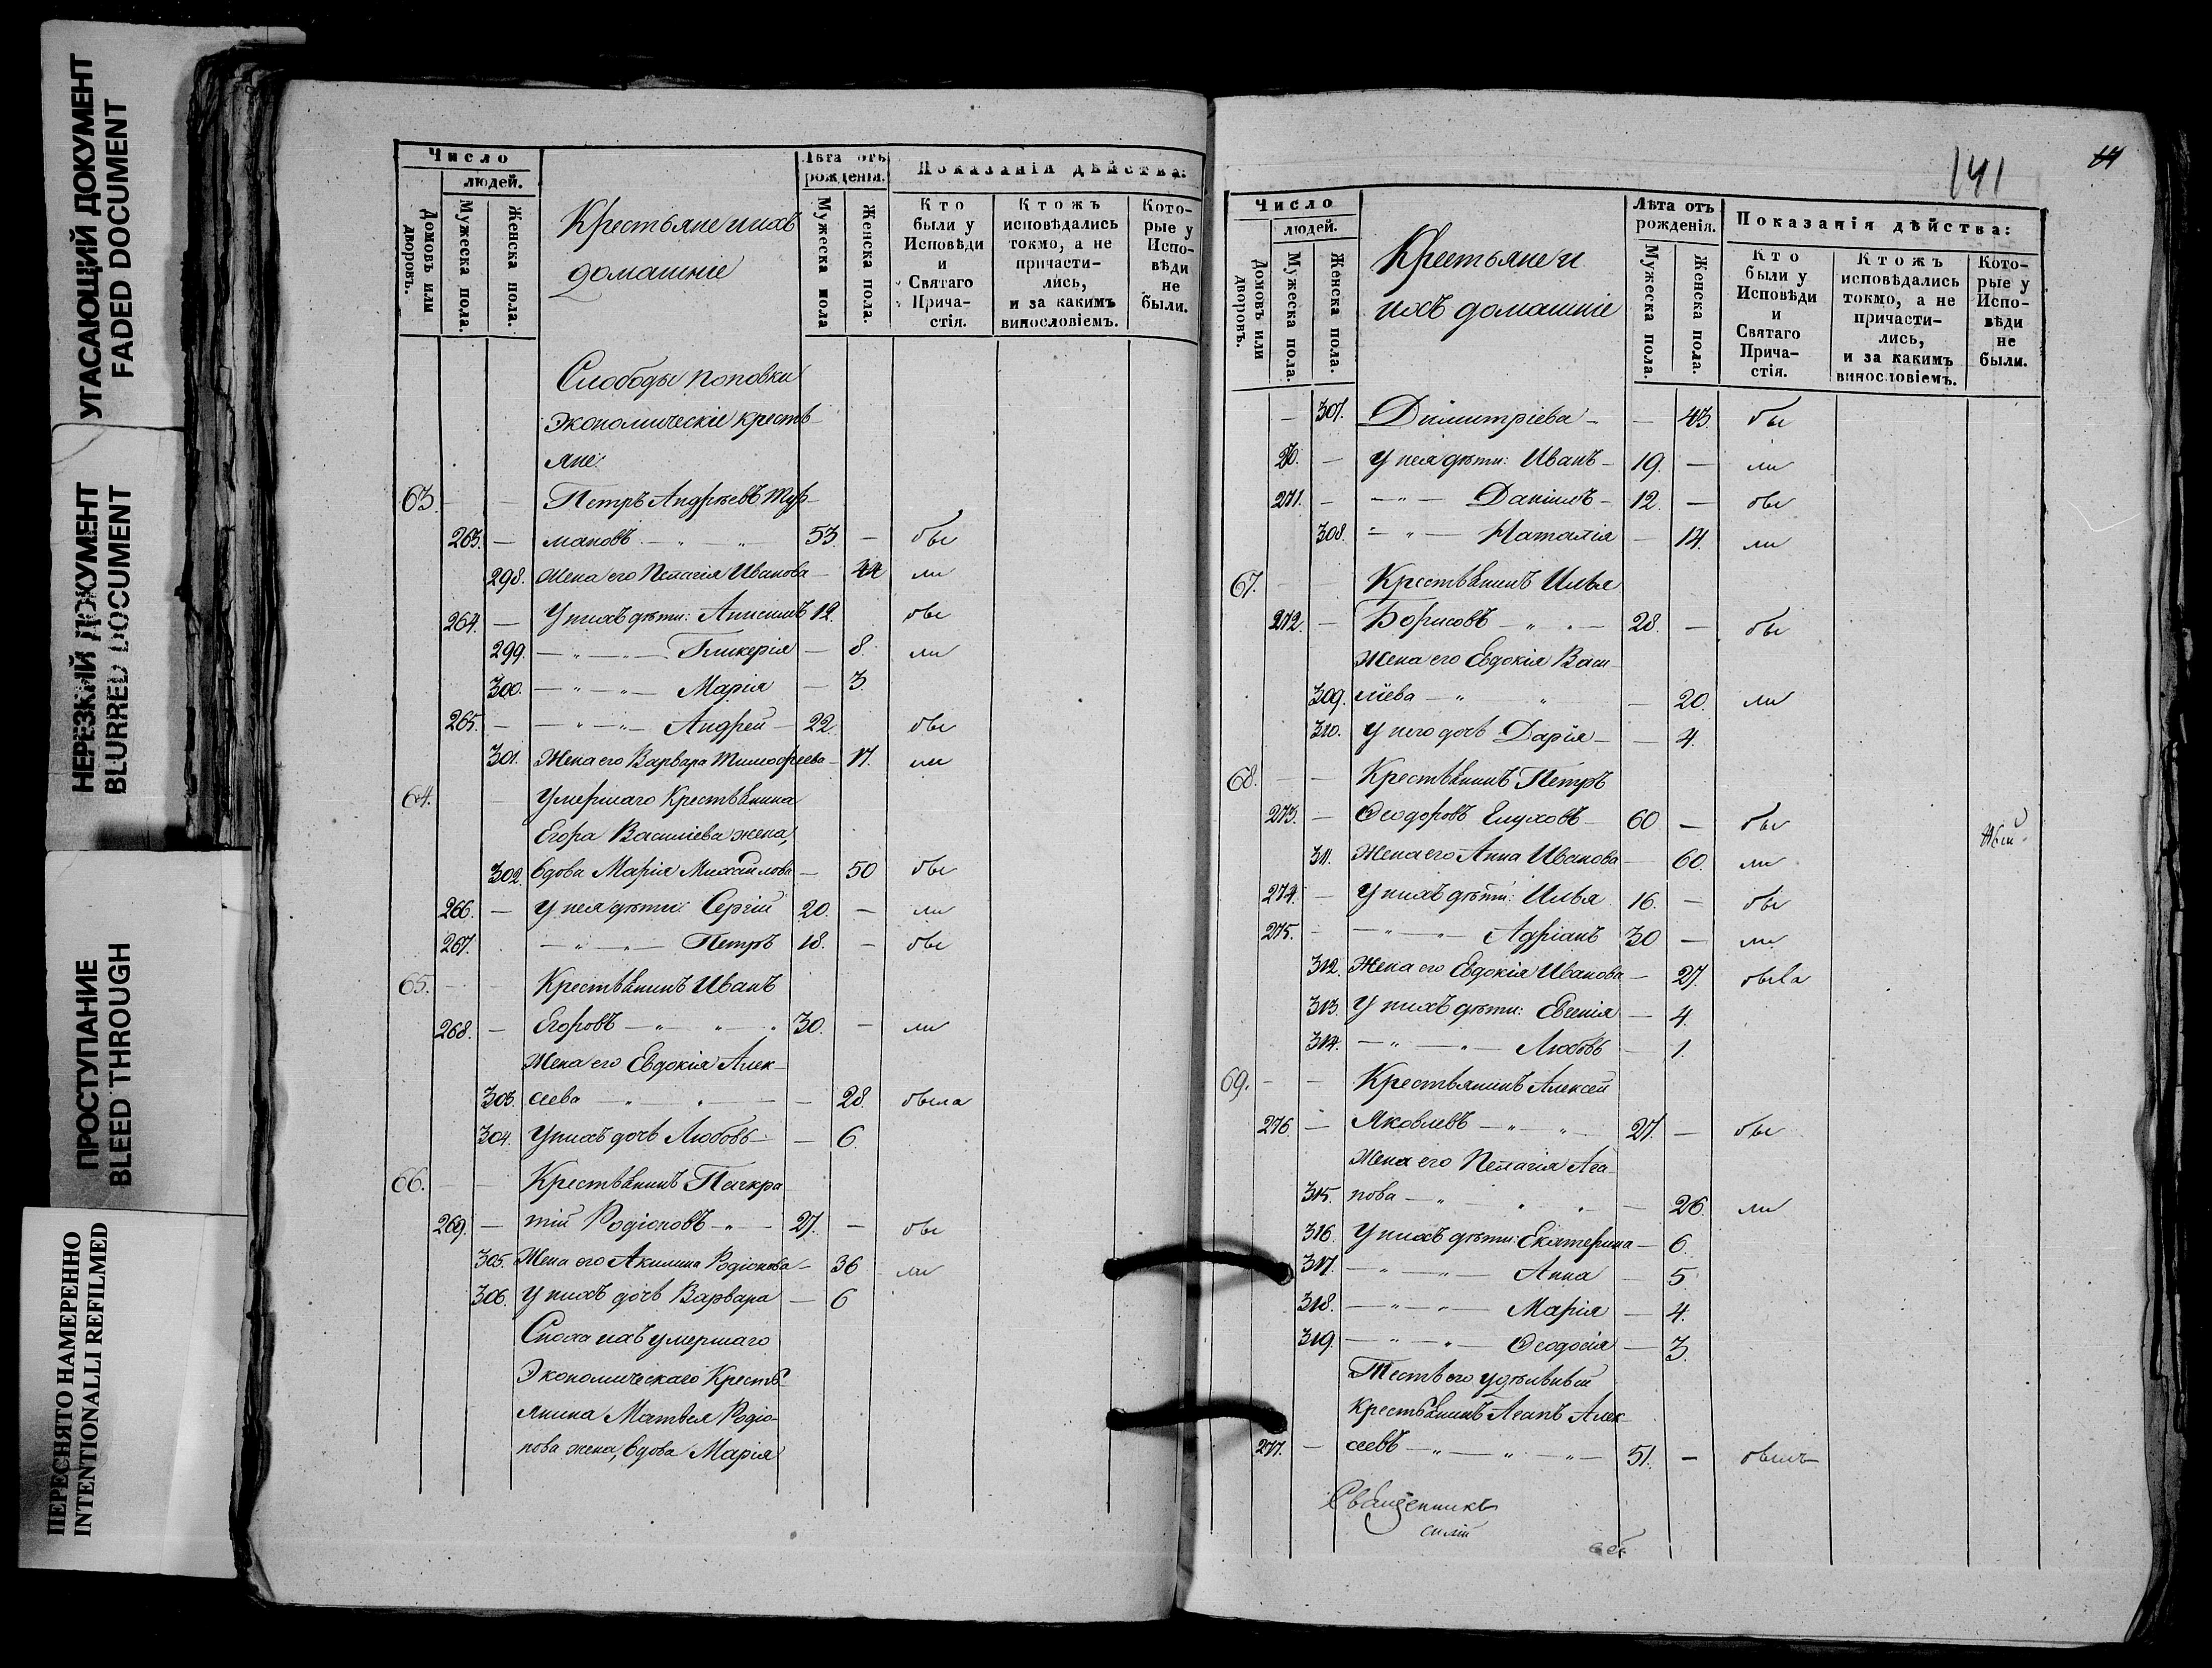 УГАСАЮЩИЙ ДОКУМЕНТ
FADED DOCUMENT
НЕРЕЗКИЙ ДОКУМЕНТ
BLURRED DOCUMENT
ПРОСТУПАНИЕ
BLEED THROUGH
ПЕРЕСНЯТО НАМЕРЕННО
INTENTIONALLI REFILMED
Число
людей.
Домовъ или дворовъ.
Мужеска пола.
Женска пола.
Крестьяне и ихъ
домашніе
Лѣта отъ
рожденія.
Мужеска пола
Женска пола.
Показанія дѣйства:
Кто
были у
Исповѣди
и
Святаго
Прича-
стія.
Ктожъ
исповѣдались
токмо, а не
причасти-
лись,
и за какимъ
винословіемъ.
Кото-
рые у
Испо-
вѣди
не
были.
Слободы Поповки
Экономическіе кресть-
яне:
63. — — Петръ Андрѣевъ Тур-
263. — мановъ — 53. — бы
298. Жена его Пелагія Иванова — 44 ли
264. — У нихъ дѣти: Анисимъ 12. бы
299. — Гликерія — 8. ли
300. — Марія — 3.
265. — Андрей — 22. бы
301. Жена его Варвара Тимофѣева — 17. ли
64. — Умершаго Крестьянина
Егора Василіева жена,
302. вдова Марія Михайлова — 50 бы
266. — У нея дѣти: Сергій 20. — ли
267. — Петръ 18. — бы
65. — — Крестьянинъ Иванъ
268. — Егоровъ — 30. — ли
Жена его Евдокія Алек-
303. сеева — 28. была
304. У нихъ дочь Любовь — 6.
66. — — Крестьянинъ Панкра-
269. — тій Родіоновъ — 27. — бы
305. Жена его Акилина Родіонова — 36 ли
306. У нихъ дочь Варвара — 6
Сноха ихъ умершаго
Экономическаго Кресть-
янина Матвея Родіо-
нова жена, вдова Марія
141
Число
людей.
Домовъ или дворовъ.
Мужеска пола.
Женска пола.
Крестьяне и
ихъ домашніе
Лѣта отъ
рожденія.
Мужеска пола.
Женска пола.
Показанія дѣйства:
Кто
были у
Исповѣди
и
Святаго
Прича-
стія.
Ктожъ
исповѣдались
токмо, а не
причасти-
лись,
и за какимъ
винословіемъ.
Кото-
рые у
Испо-
вѣди
не
были.
— 307. Димитріева — — 43. бы
270. — У нея дѣти: Иванъ — 19. — ли
271. — Даніилъ — 12. — бы
308. — Наталія — 14. ли
67. — — Крестьянинъ Илья
272. — Борисовъ — 28. — бы
Жена его Евдокія Васи-
309. ліева — 20. ли
310. У него дочь Дарія — — 4.
68. — — Крестьянинъ Петръ
273. — Ѳеодоровъ Глуховъ — 60 — бы
311. Жена его Анна Иванова — 60. ли
274. — У нихъ дѣти: Илья 16. — бы
275. — Адріанъ 30 — ли
312. Жена его Евдокія Иванова — 27. была
313. У нихъ дѣти: Евгенія — 4.
314. — Любовь — 1.
69. — — Крестьянинъ Алексей
276. — Яковлевъ — 27. — бы
Жена его Пелагія Ага-
315. пова — 26. ли
316. У нихъ дѣти: Екатерина — 6.
317. — Анна — 5.
318. — Марія — 4.
319. — Ѳеодосія — 3.
Тесть его удѣльный
Крестьянинъ Агапъ Алек-
277. — сеевъ — 51. — былъ
Священникъ